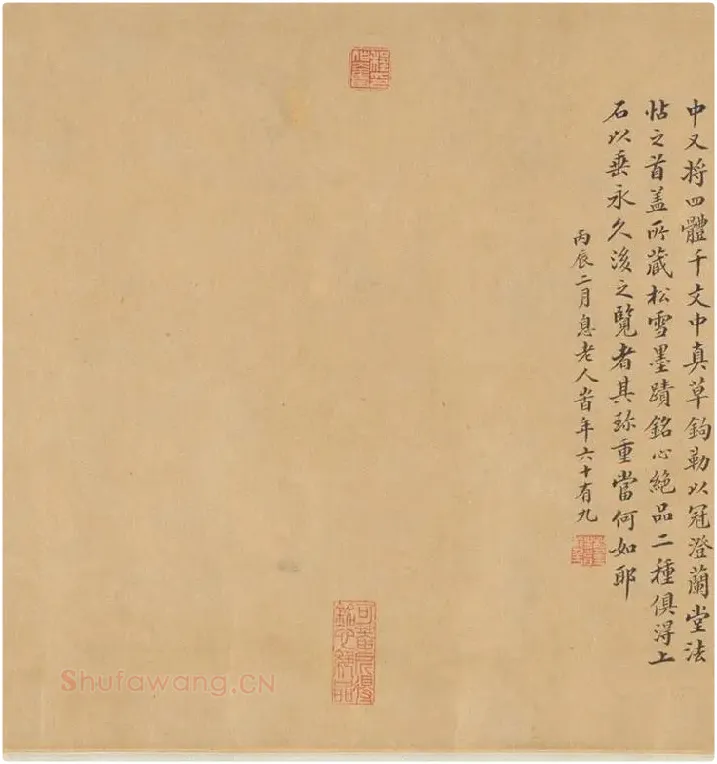 中又將四體千文中真草鉤勒以冠澄蘭堂法
帖之首盖所藏松雪墨蹟銘心絶品二種俱得上
石以垂永久後之覽者其珎重當何如耶
丙辰二月息老人時年六十有九
Shufawang.CN